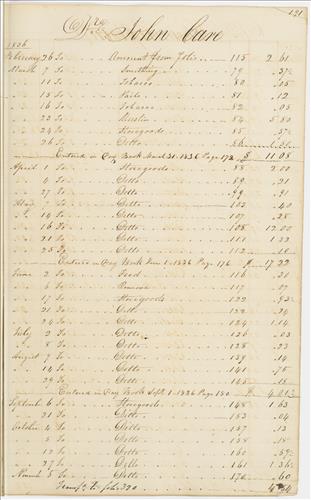 121
Mr. John Care
1836
February 26 To Amount from Folio 115 2 61
March 7 To Smithing 79 .37½
To Tobacco 80
15 To Nails 81 .12
16 To Tobacco 82 .03
23 To 84 5 80
24 To Storegoods 85
26 To Ditto 86
Entered in Day Book March 31. 1836 Page 172 $ 11 08
April 1 To Storegoods 88 2 00
4 To Ditto 89 .21
27 To Ditto 99 .91
To Ditto 103 .40
14 To Ditto 107 .28
16 To Ditto 108 12.00
21 To Ditto 111 1 33
25 To Ditto 112
Entered in Day Book June 1. 1836 Page 176 $ 17 22
June 2 To 116 .31
6 To 117
17 To Storegoods 122
21 To Ditto
24 To Ditto 124 1 14
July 2 To Ditto 126 .03
8 To Ditto 128 .23
August 9 To Ditto 139 .14
14 To Ditto 141 .75
29 To Ditto 145 .18
Entered in Day Book Sept 1. 1836 Page 180 $
September 6 To Storegoods 148 1 63
21 To Ditto 153 .04
October 4 To Ditto 157 .13
5 To Ditto 158 .18
12 To Ditto 160
27 To Ditto 161 1.36
5 To Ditto 172 .60
Transf to folio 320